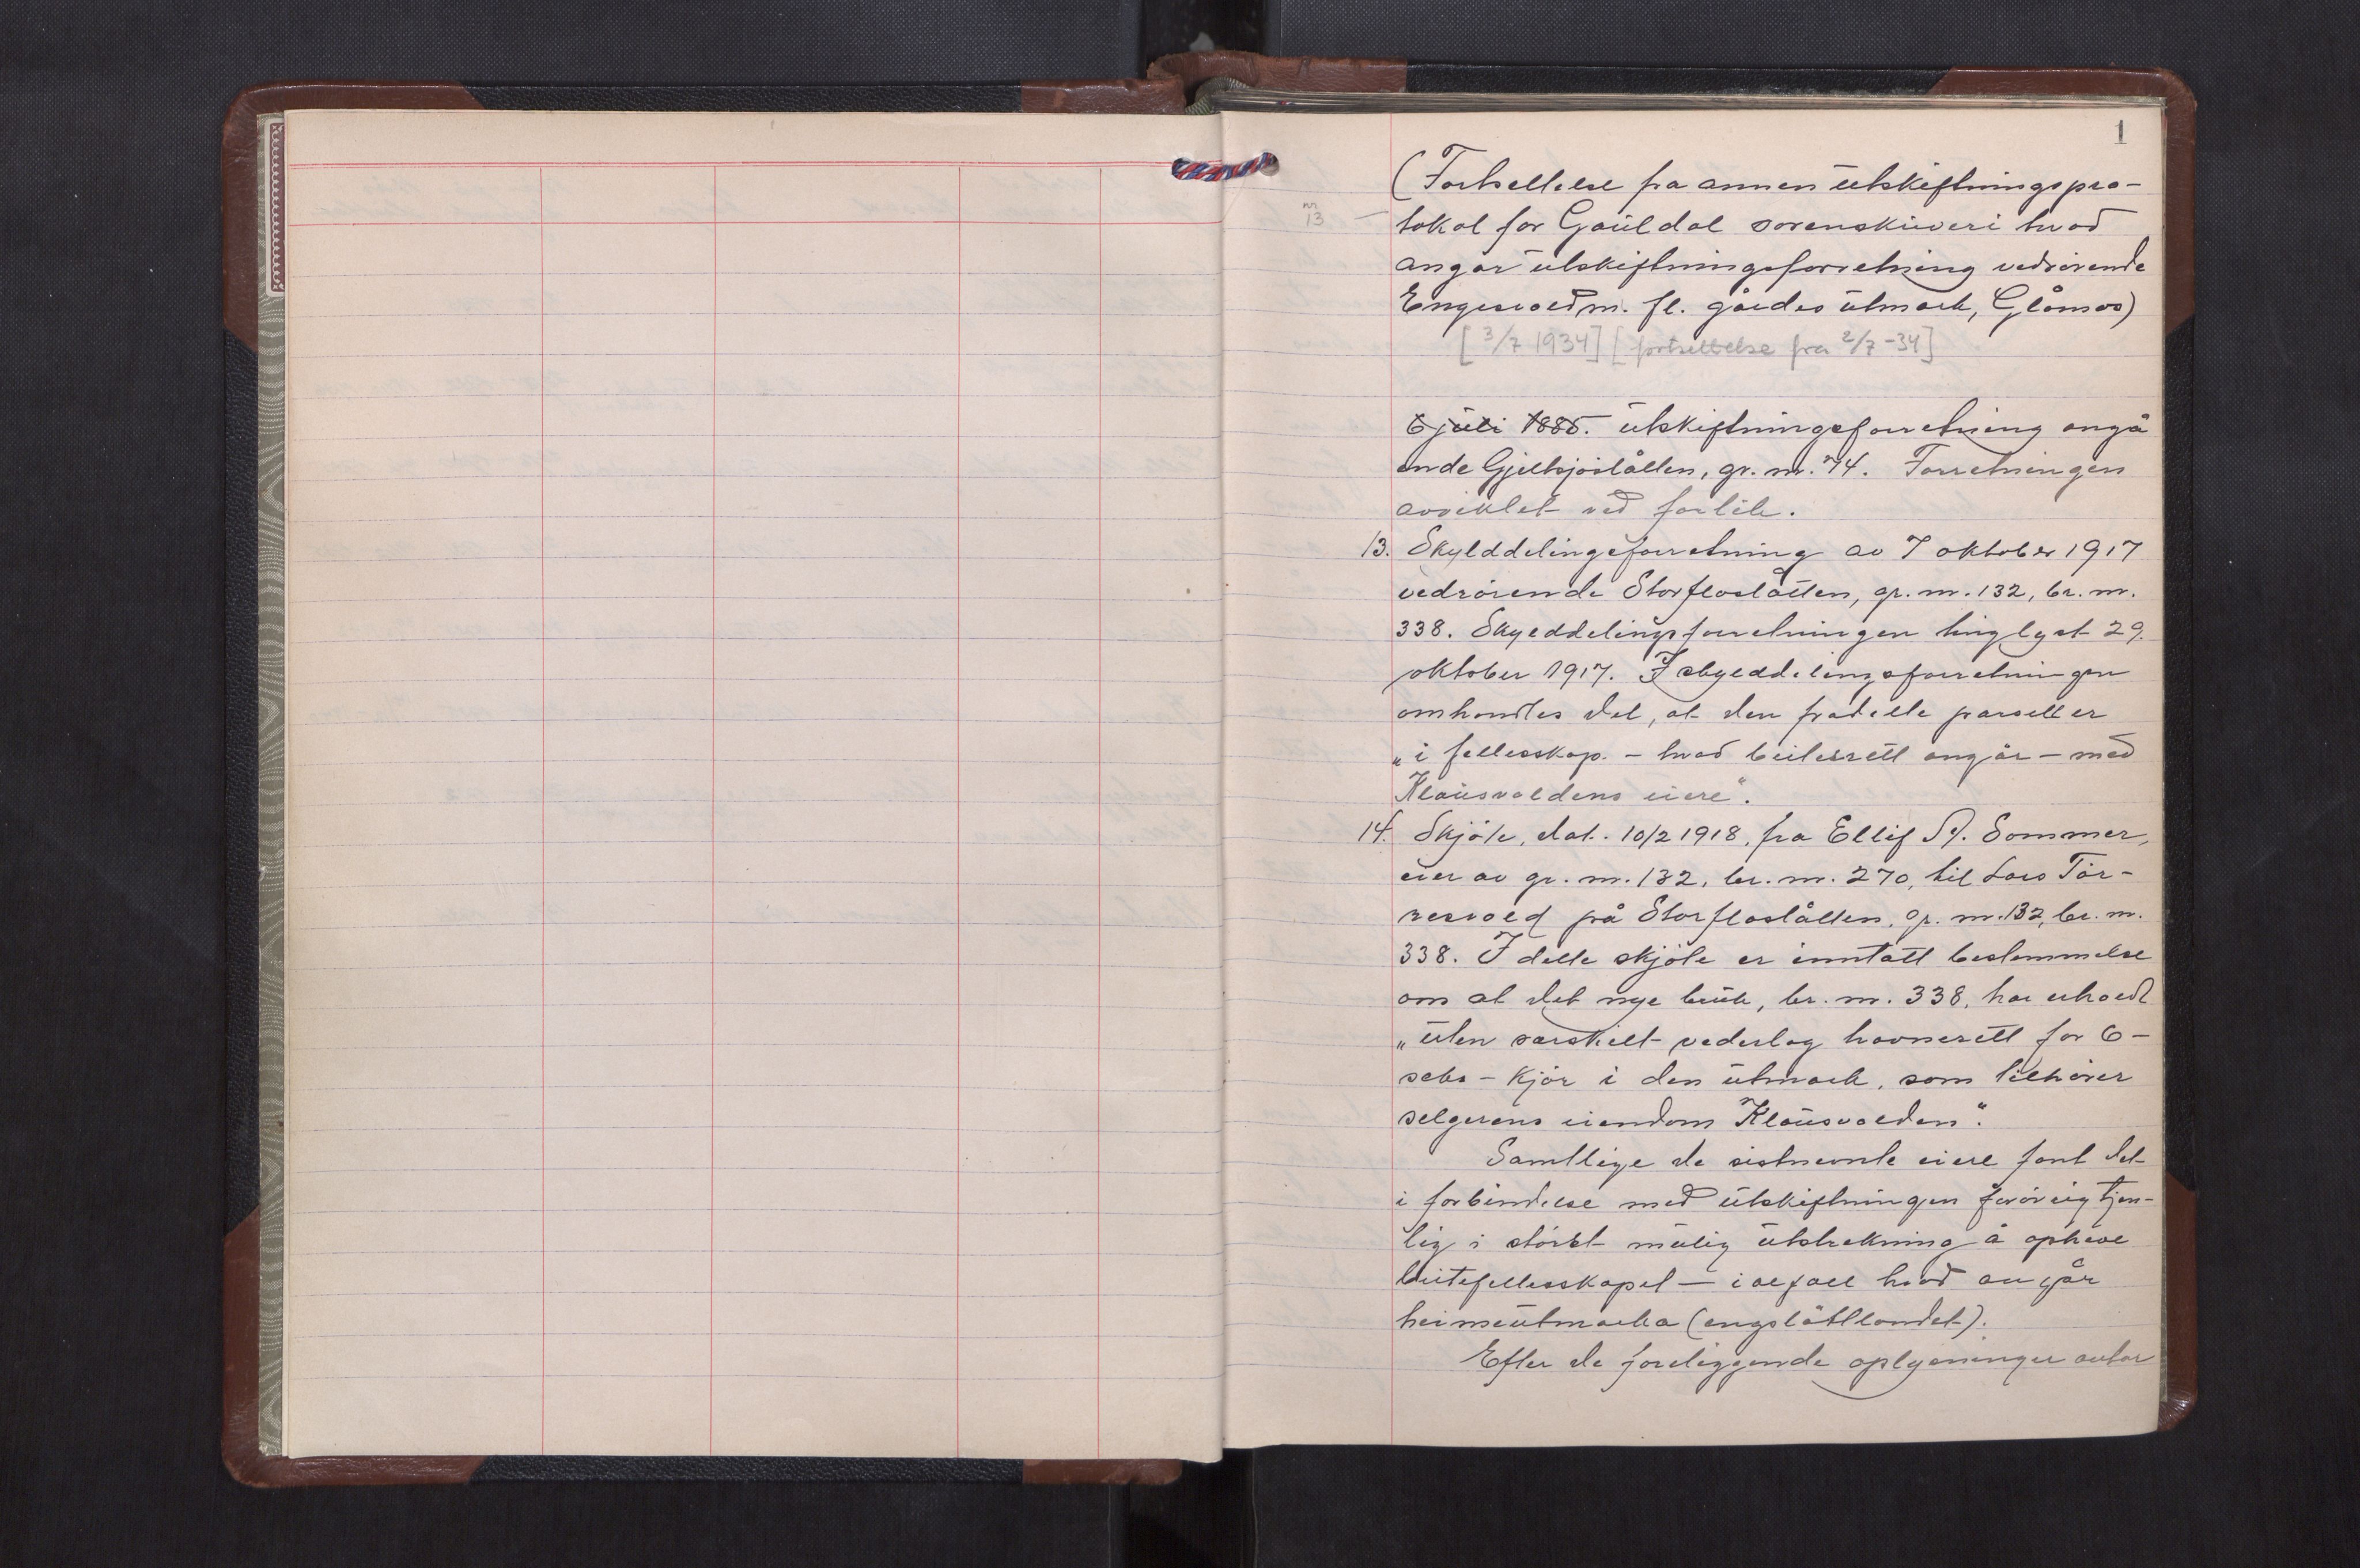 1
(Fortsettelse fra annen utskiftningspro-
nr 13 — tokol for Gauldal sorenskriveri hvad
angår utskiftningsforretning vedrørende
Engesvold m. fl. gårdes utmark, Glåmos)
[3/7 1934] [fortsettelse fra 2/7-34]
6 juli 1885. utskiftningsforretning angå
ende Gjeltsjøslåtten, gr. nr. 74. Forretningen
avviklet ved forlik.
13. Skylddelingsforretning av 7 oktober 1917
vedrørende Storfloslåtten, gr. nr. 132, br. nr.
338. Skylddelingsforretningen tinglyst 29.
oktober 1917. I skylddelingsforretningen
omhandles det, at den fradelte parsell er
„i fellesskap - hvad beitesrett angår - med
Klausvoldens eiere".
14. Skjøte, dat. 10/2 1918, fra Ellif Sommer,
eier av gr. nr. 132, br. nr. 270, til Lars Tør-
resvold på Storfloslåtten, gr. nr. 132, br. nr.
338. I dette skjøte er inntatt bestemmelse
om at det nye bruk, br. nr. 338, har erhvedt
„uten særskilt vederlag havnerett for 6 -
seks - kjør i den utmark, som tilhører
selgerens eiendom Klausvolden".
Samtlige de sistnevnte eiere fant det
i forbindelse med utskiftningen forøvrig tjen-
lig i størst mulig utstrekning å opheve
beitefellesskapet - i alfall hvad angår
heimeutmarka (engslåttlandet).
Efter de foreliggende oplysninger antar